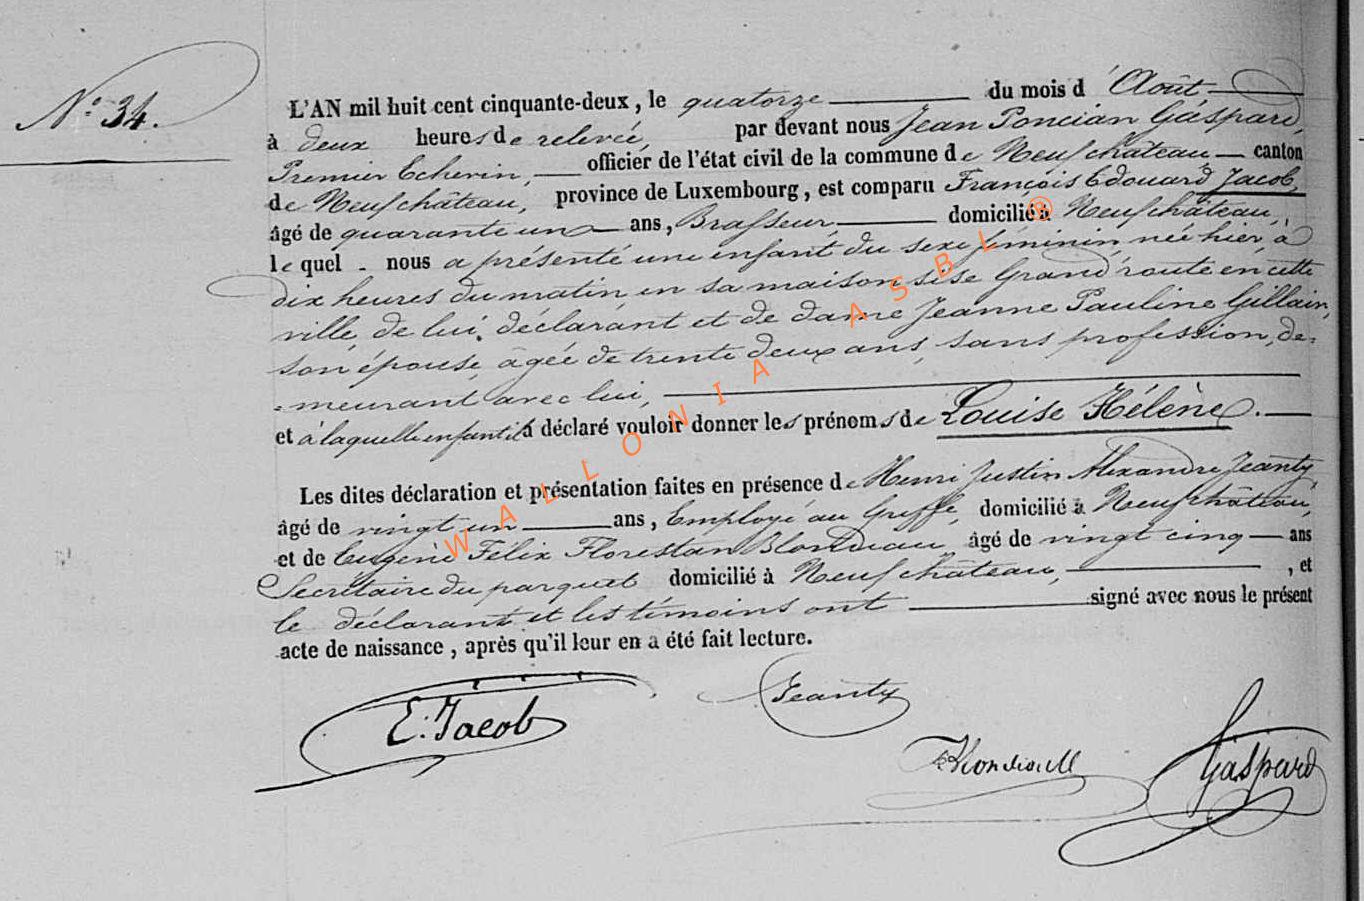 N° 34.
L'AN mil huit cent cinquante-deux, le quatorze du mois d'Août
à deux heures de relevée, par devant nous Jean Poncian Gaspard,
Premier Echevin, officier de l'état civil de la commune de Neufchâteau canton
de Neufchâteau, province de Luxembourg, est comparu François Edouard Jacob,
âgé de quarante un ans, Brasseur, domicilié à Neufchâteau,
lequel nous a présenté une enfant du sexe féminin née hier, à
dix heures du matin, en sa maison sise Grand'route en cette
ville, de lui déclarant et de dame Jeanne Pauline Gillain,
son épouse, agée de trente deux ans, sans profession, de=
=meurant avec lui,
et à laquelle enfant il a déclaré vouloir donner les prénoms de Louise Hélène.
Les dites déclaration et présentation faites en présence de Henri Justin Alexandre Jeanty
âgé de vingt un ans, Employé au Greffe, domicilié à Neufchâteau,
et de Eugène Félix Florestan Blondiau, âgé de vingt cinq ans
Secrétaire du parquet domicilié à Neufchâteau, , et
le déclarant et les témoins ont signé avec nous le présent
acte de naissance, après qu'il leur en a été fait lecture.
E. Jacob
Jeanty
Gaspard
WALLONIA ASBL ®